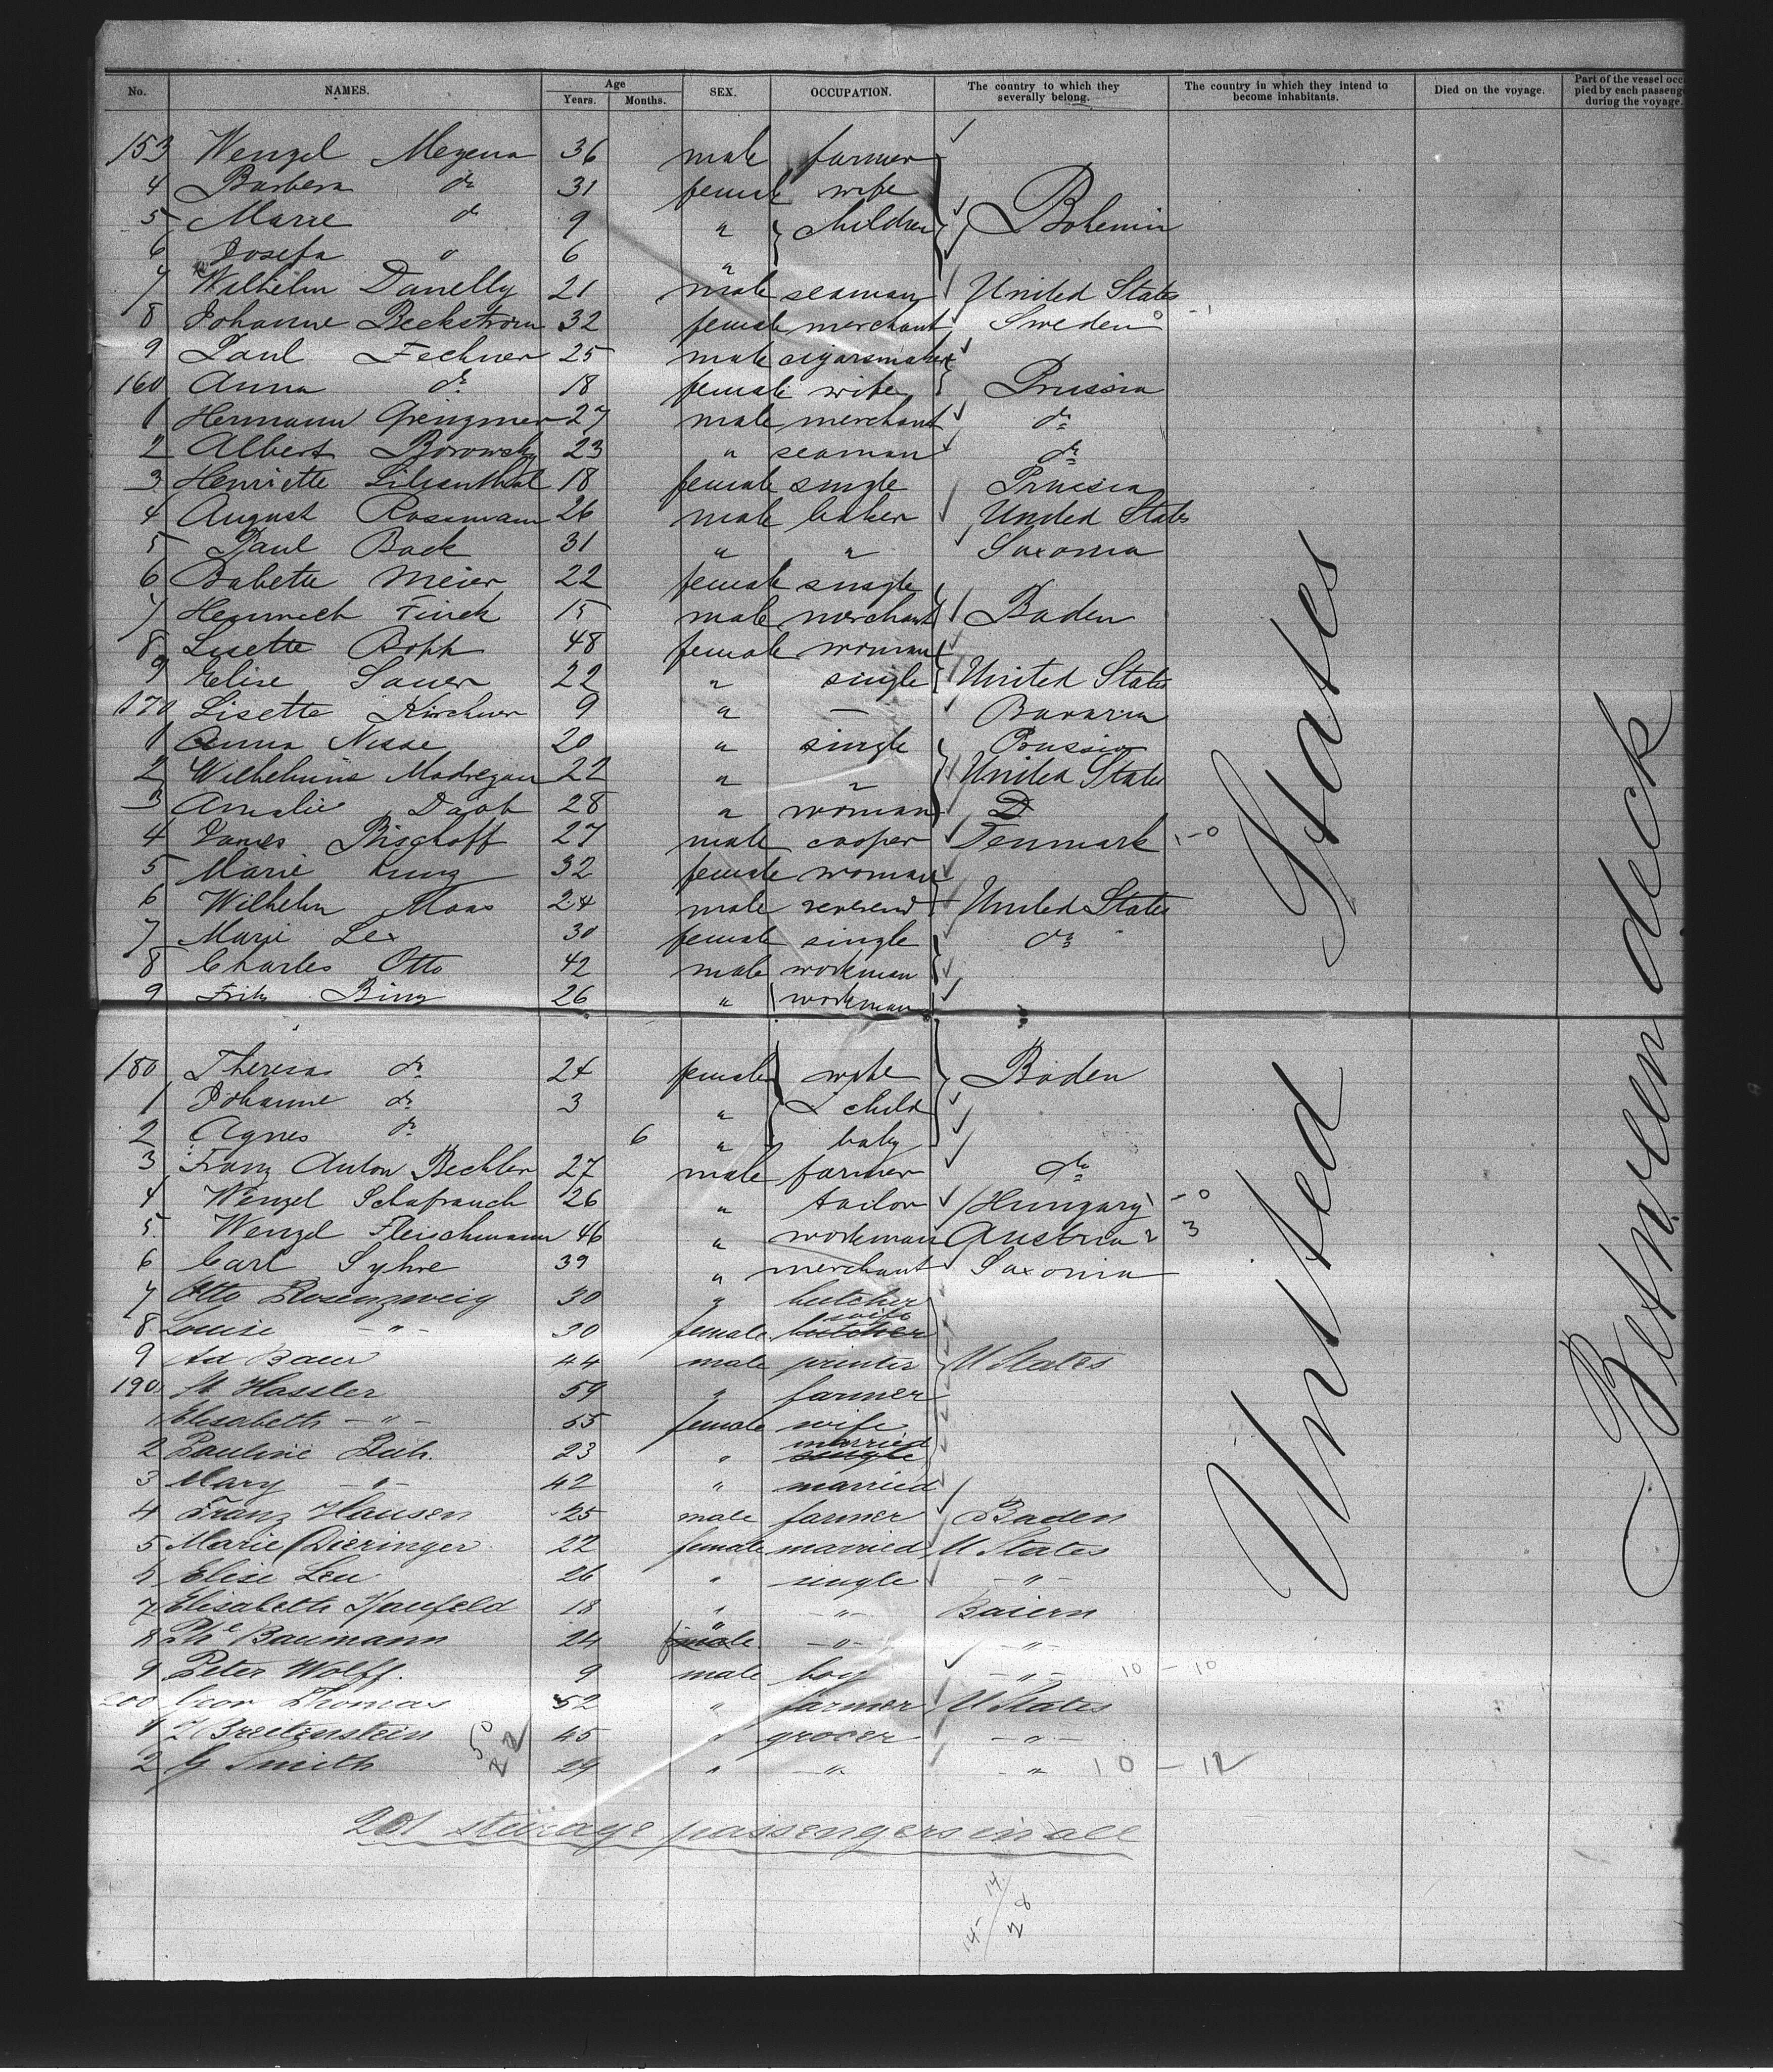 No. NAMES. Age Years. Months. SEX. OCCUPATION. The country to which they severally belong. The country in which they intend to become inhabitants. Died on the voyage. Part of the vessel occupied by each passenger during the voyage.
153 Wenzel 36 male farmer
4 Barbera do 31 female wife
5 Marie do 9 " children Bohemia
6 Josefa " 6 "
7 Wilhelm Danelly 21 male seaman United States
8 Johanne Beckstrom 32 female merchant Sweden
9 Paul Fechner 25 male cigarsmaker
160 Anna do 18 female wife Prussia
1 Hermann Grenzmer 27 male merchant do
2 Albert Borowsky 23 " seaman do
3 Henriette Lilienthal 18 female single Prussia
4 August Rossmann 26 male baker United States
5 Paul Back 31 " " Saxonia
6 Babette Meier 22 female single
7 Heinrich Finck 15 male merchant Baden
8 Lisette Bopp 48 female woman
9 Elise Sauer 22 " single United States
170 Lisette Kirchner 9 " — Bavaria
1 Anna Nisse 20 " single Prussia
2 Wilhelmine 22 " " United States
3 Amalie Daab 28 " woman D
4 James Bischoff 27 male cooper Denmark 1-0
5 Marie Kunz 32 female woman
6 Wilhelm Maas 24 male reverend United States
7 Marie Lex 30 female single do
8 Charles Otto 42 male workman
9 Fritz Binz 26 " workman
180 Theresia do 24 female wife Baden
1 Johanne do 3 " child
2 Agnes do 6 " baby
3 Franz Anton Bechler 27 male farmer do
4 Wenzel Schafranch 26 " tailor Hungary 1 - 0
5 Wenzel Fleischmann 46 " workman Austria 2 3
6 Carl Syhre 39 " merchant Saxonia
7 Otto Rosenzweig 30 " butcher
8 Louise - " - 30 female butcher wife
9 Ad Baur 44 male printer U States
190 M Hassler 59 " farmer
1 Elisabeth - " - 55 female wife
2 Pauline 23 " single married
3 Mary - " - 42 " married
4 Franz Hausen 25 male farmer Baden
5 Marie Dieringer 22 female married U States
6 Elise Leu 26 " single - " -
7 Elisabeth 18 " - " - Baiern
8 Phe Baumann 24 " - " - - " -
9 Peter Wolff. 9 male boy - " - 10 - 10
200 Geor Thomas 52 " farmer U States
1 Breitenstein 45 " grocer - " -
2 G Smith 29 " - " - " 10 - 12
50
22
201 steirage passengers in all
14
14 28
United States
Between deck